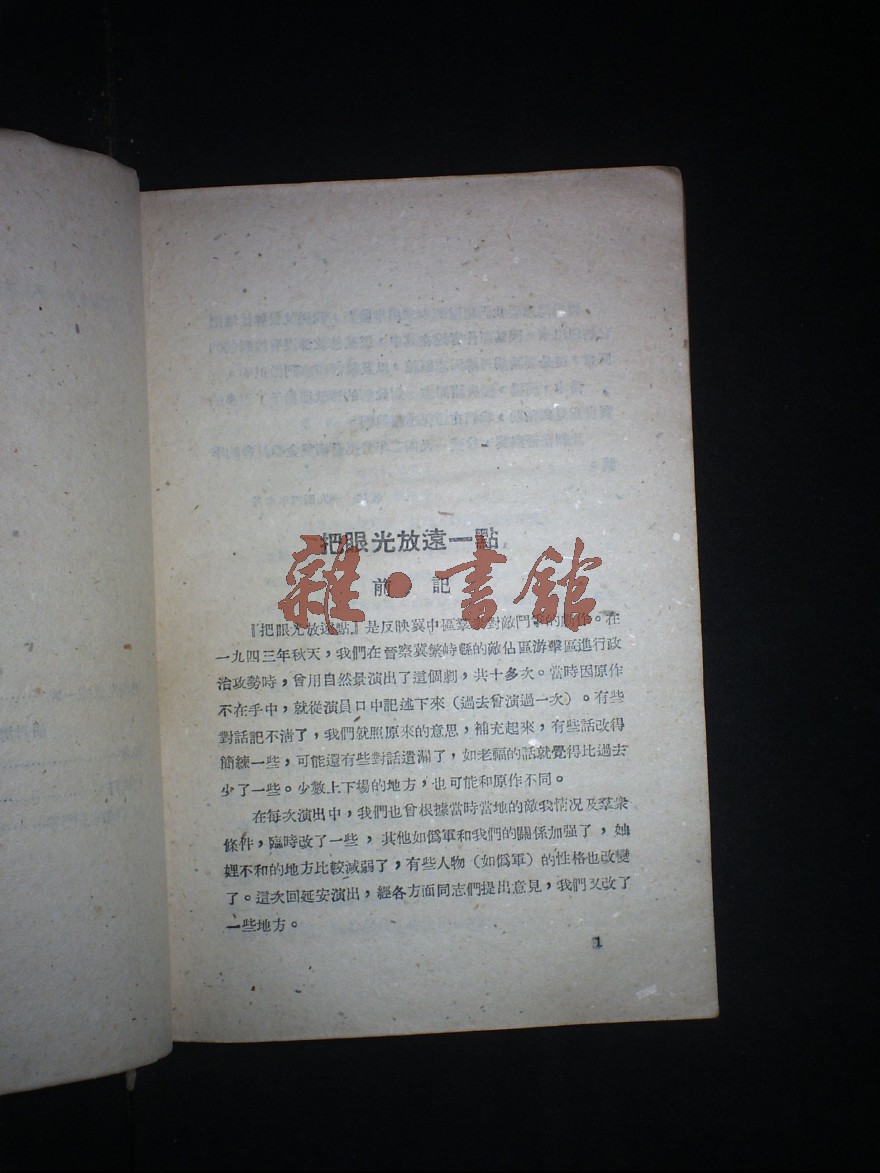 把眼光放遠一點
前記
雜·書館
『把眼光放遠點』是反映冀中區羣衆對敵鬥爭的劇作。在
一九四三年秋天，我們在晉察冀繁峙縣的敵佔區游擊區進行政
治攻勢時，曾用自然景演出了這個劇，共十多次。當時因原作
不在手中，就從演員口中記述下來（過去曾演過一次）。有些
對話記不淸了，我們就照原來的意思，補充起來，有些話改得
簡練一些，可能還有些對話遺漏了，如老福的話就覺得比過去
少了一些。少數上下場的地方，也可能和原作不同。
在每次演出中，我們也曾根據當時當地的敵我情况及羣衆
條件，臨時改了一些，其他如僞軍和我們的關係加强了，妯
娌不和的地方比較減弱了，有些人物（如僞軍）的性格也改變
了。這次回延安演出，經各方面同志們提出意見，我們又改了
一些地方。
1